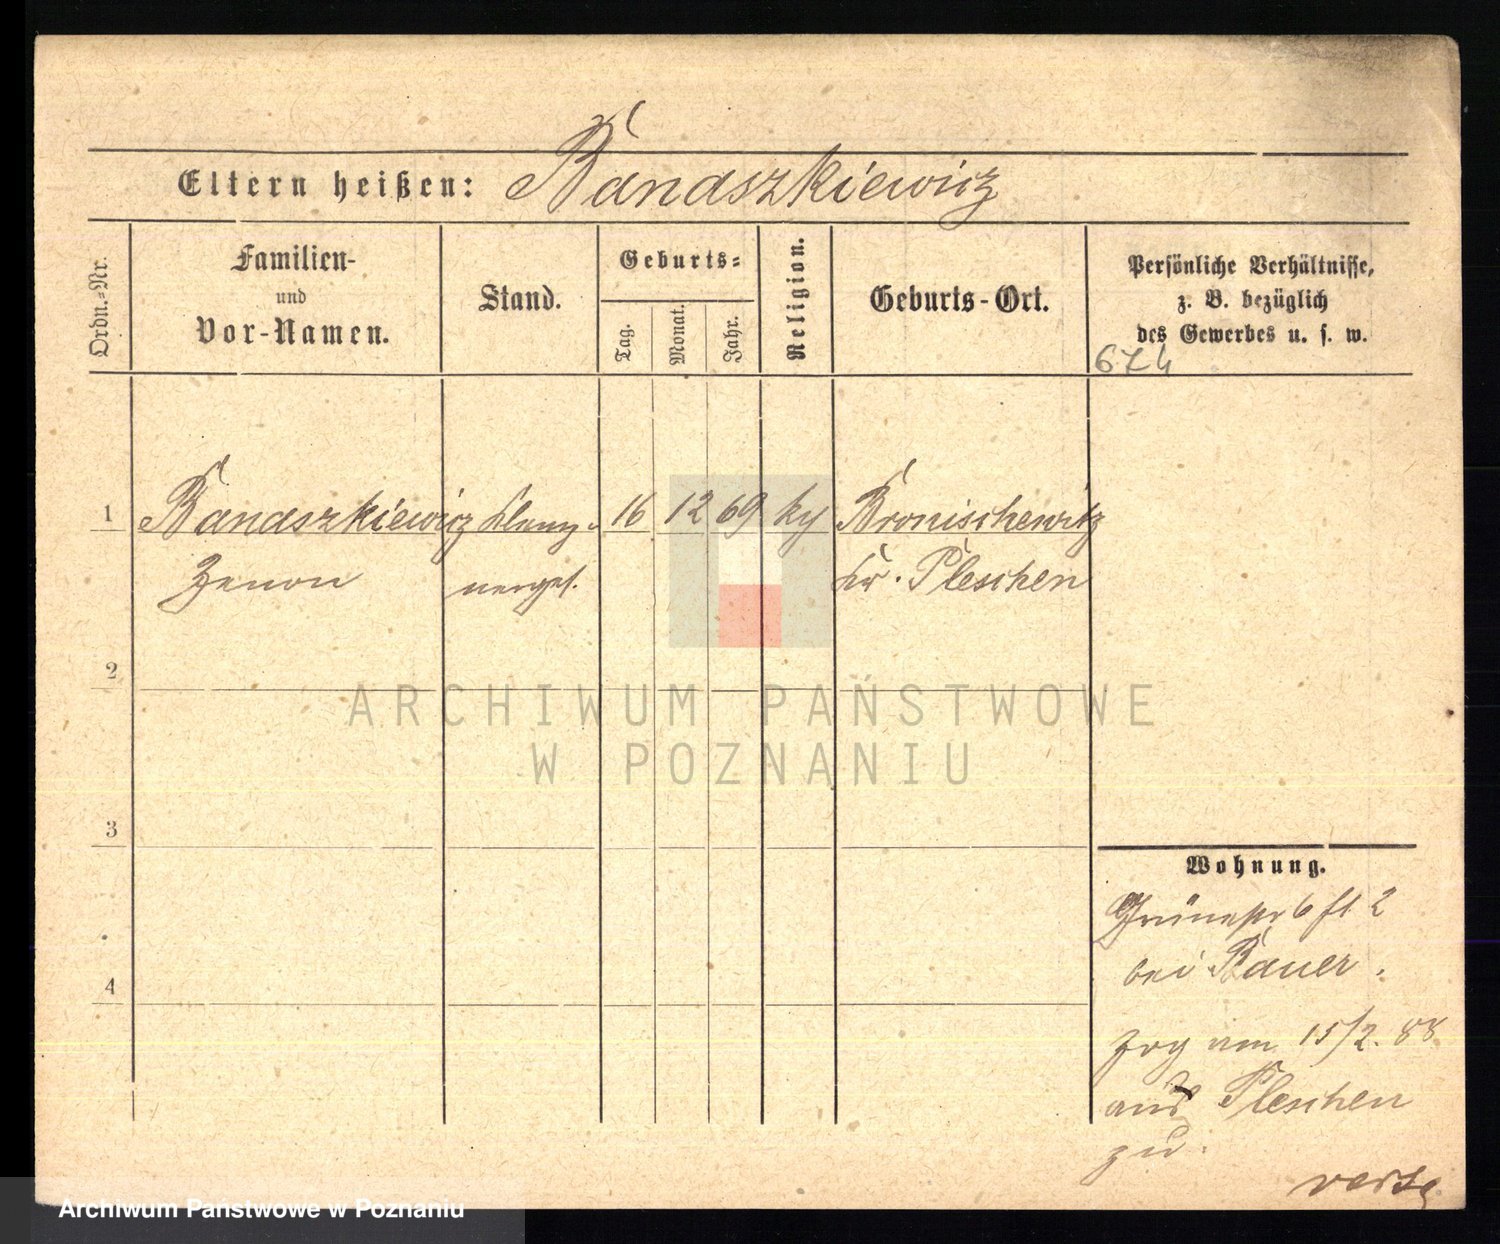 Eltern heißen: Banaszkiewicz
Ordn.-Nr.
Familien-
und
Vor-Namen.
Stand.
Geburts-
Tag.
Monat.
Jahr.
Religion.
Geburts-Ort.
Persönliche Verhältnisse,
z. B. bezüglich
des Gewerbes u. s. w.
674
1 Banaszkiewicz Klemp- 16 12 69 kth Bronischewitz
Zenon nerges. Kr. Pleschen
2
3
4
Wohnung.
Grünestr 6 fl 2
bei Bauer.
zog am 15/2. 88
aus Pleschen
zu.
ARCHIWUM PAŃSTWOWE
W POZNANIU
Archiwum Państwowe w Poznaniu